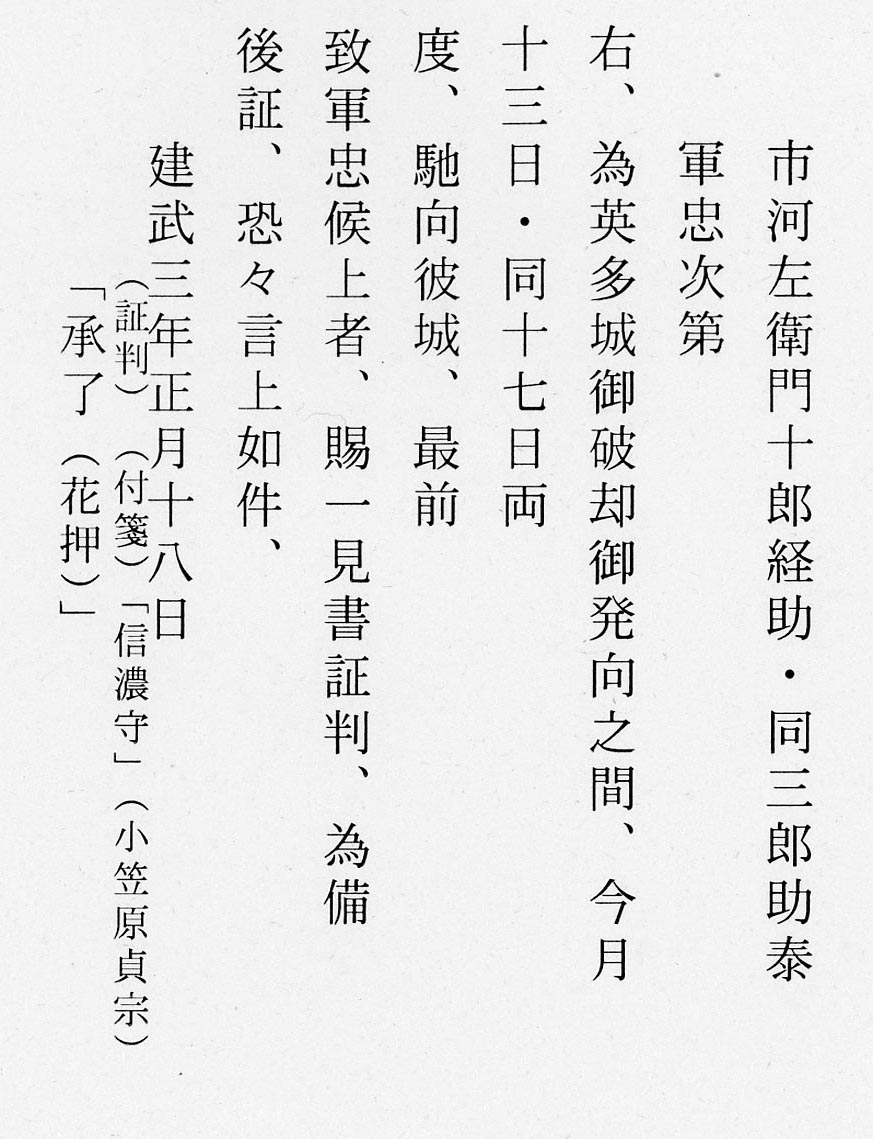 市河左衛門十郎経助・同三郎助泰
軍忠次第
右、為英多城御破却御発向之間、今月
十三日・同十七日両
度、馳向彼城、最前
致軍忠候上者、賜一見書証判、為備
後証、恐々言上如件、
建武三年正月十八日
（証判）（付箋）「信濃守」（小笠原貞宗）
「承了（花押）」